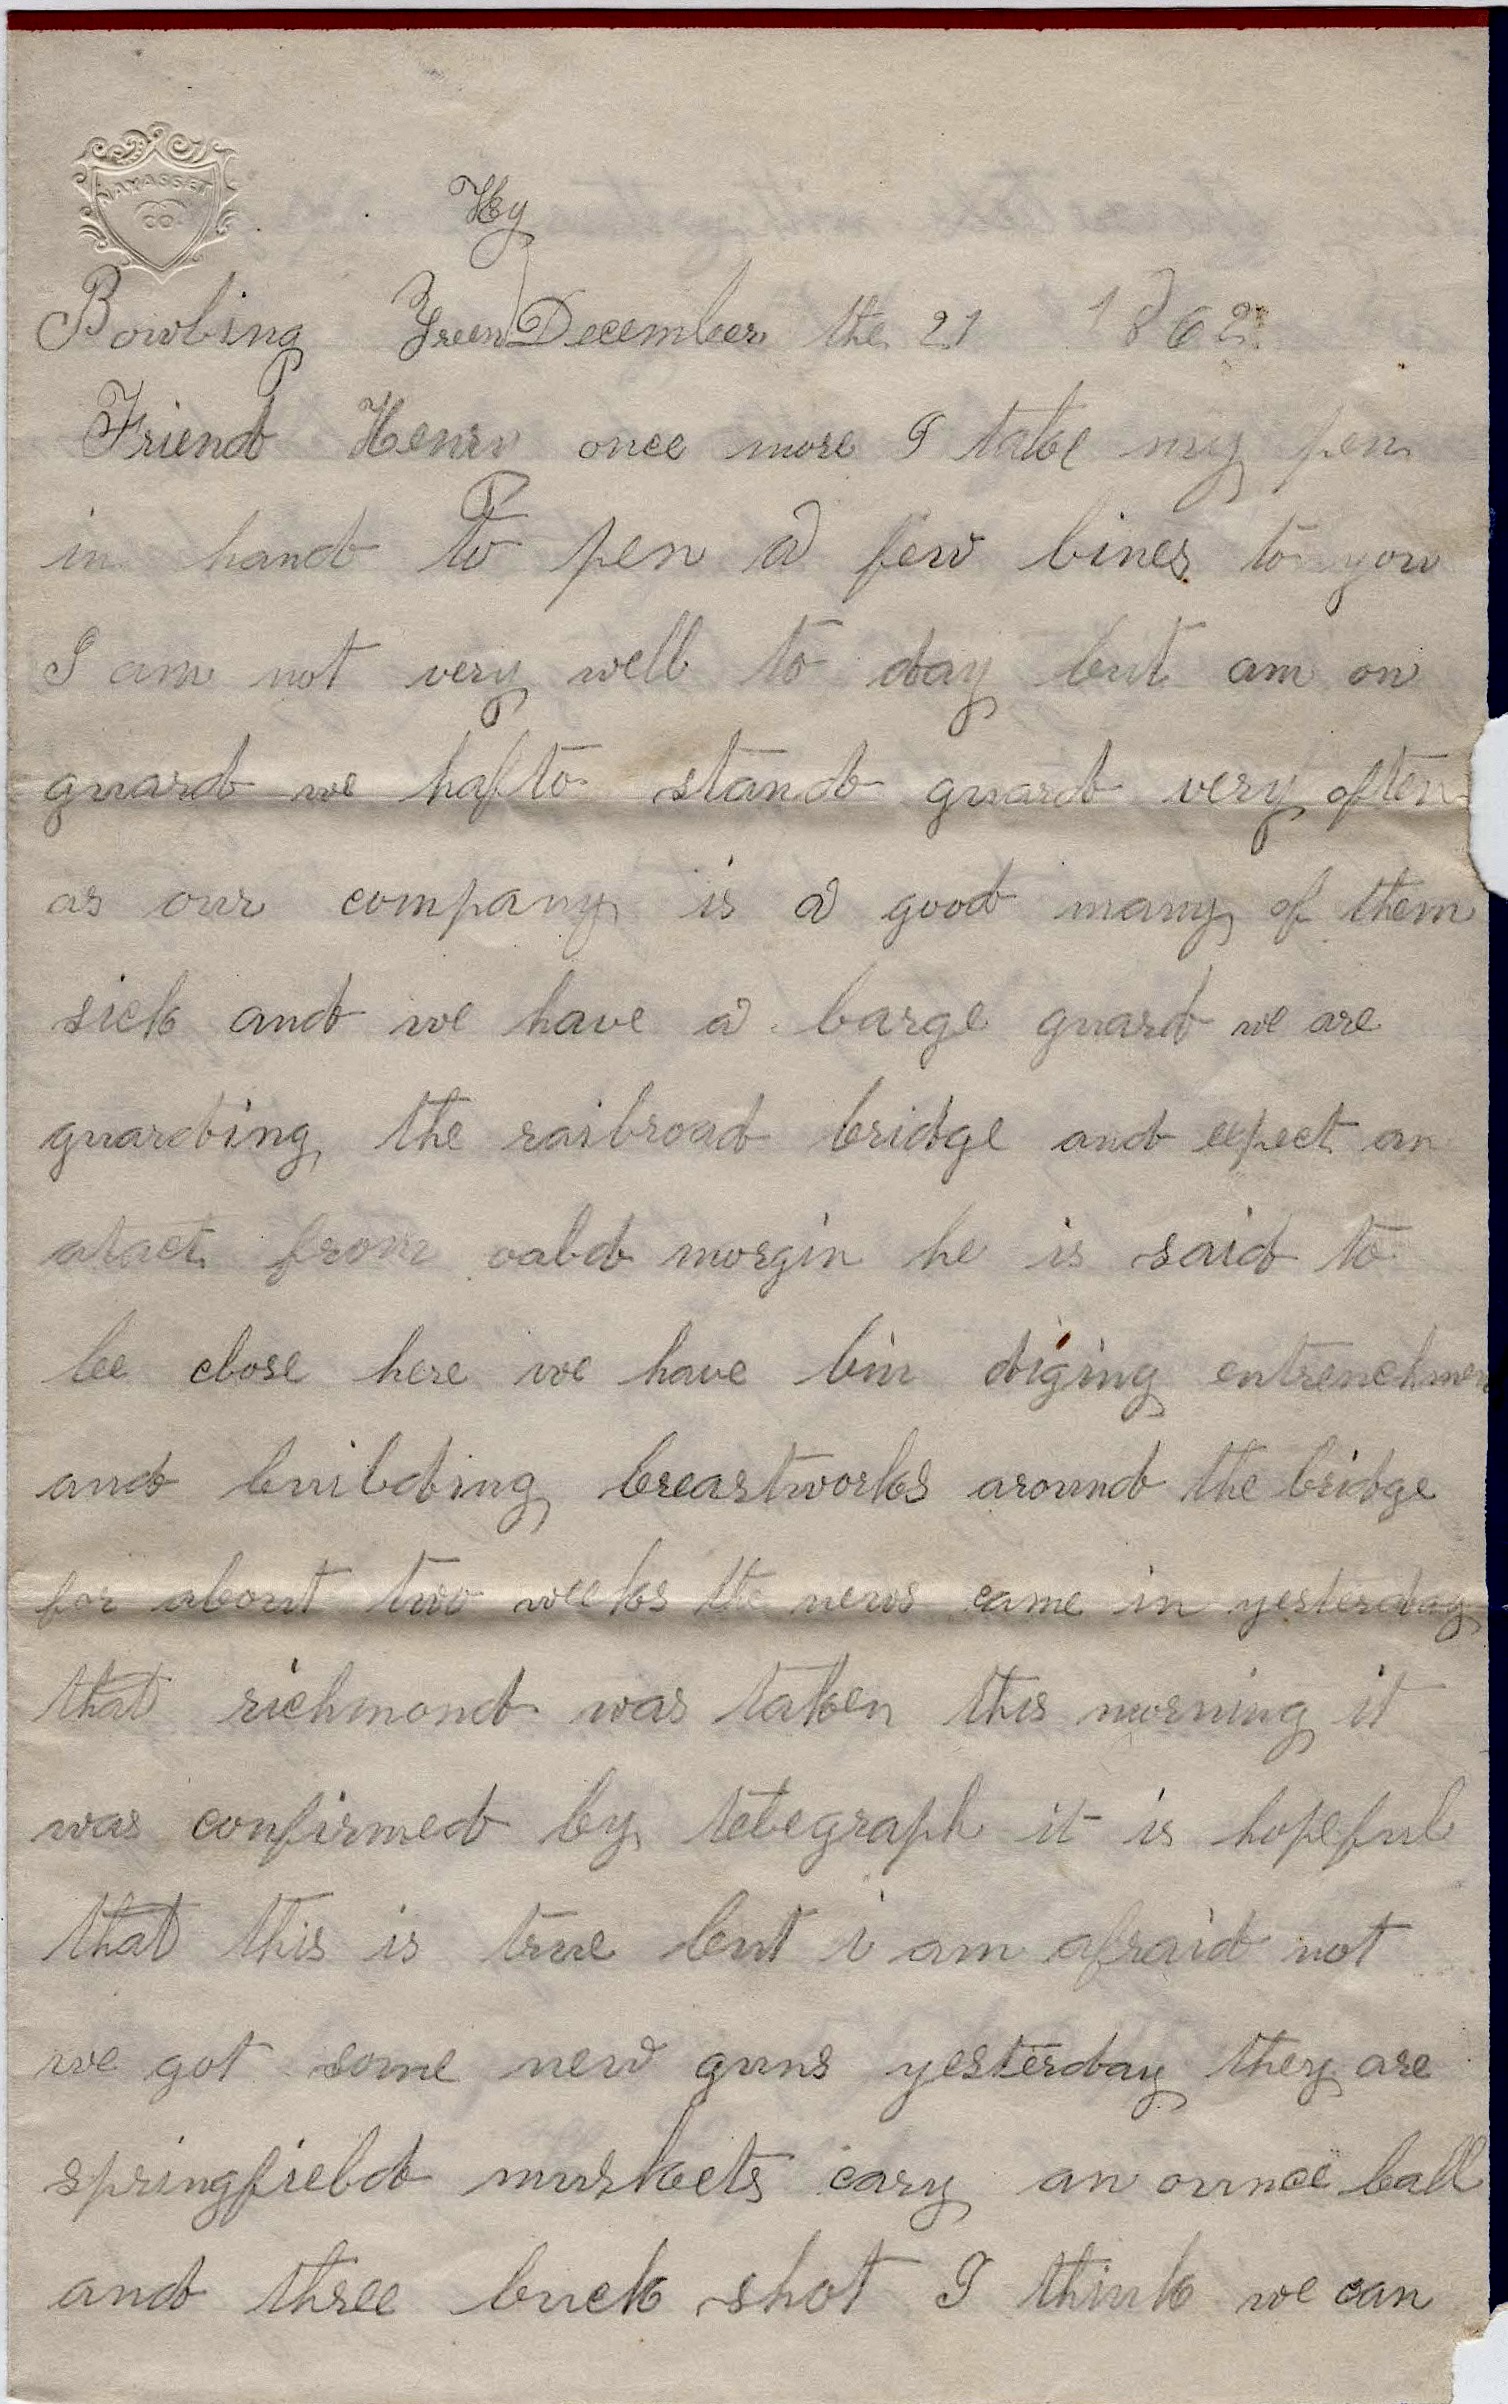 Ky
Bowling Green December the 21 1862
Friend Henry once more I take my pen
in hand To pen a few lines to you
I am not very well to day but am on
guard we hafto stand guard very often
as our company is a good many of them
sick and we have a large guard we are
guarding the railroad bridge and expect an
atact from oald morgin he is said to
be close here we have bin diging entrenchmen
and building breastworks around the bridge
for about two weeks the news came in yesterday
that richmond was taken this morning it
was confirmed by telegraph it is hopeful
that this is true but i am afraid not
we got some new guns yesterday they are
springfield muskets cary an ounce ball
and three buck shot I think we can